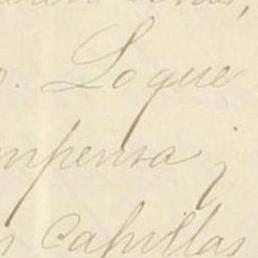 Lo que
mpensa;
capillas